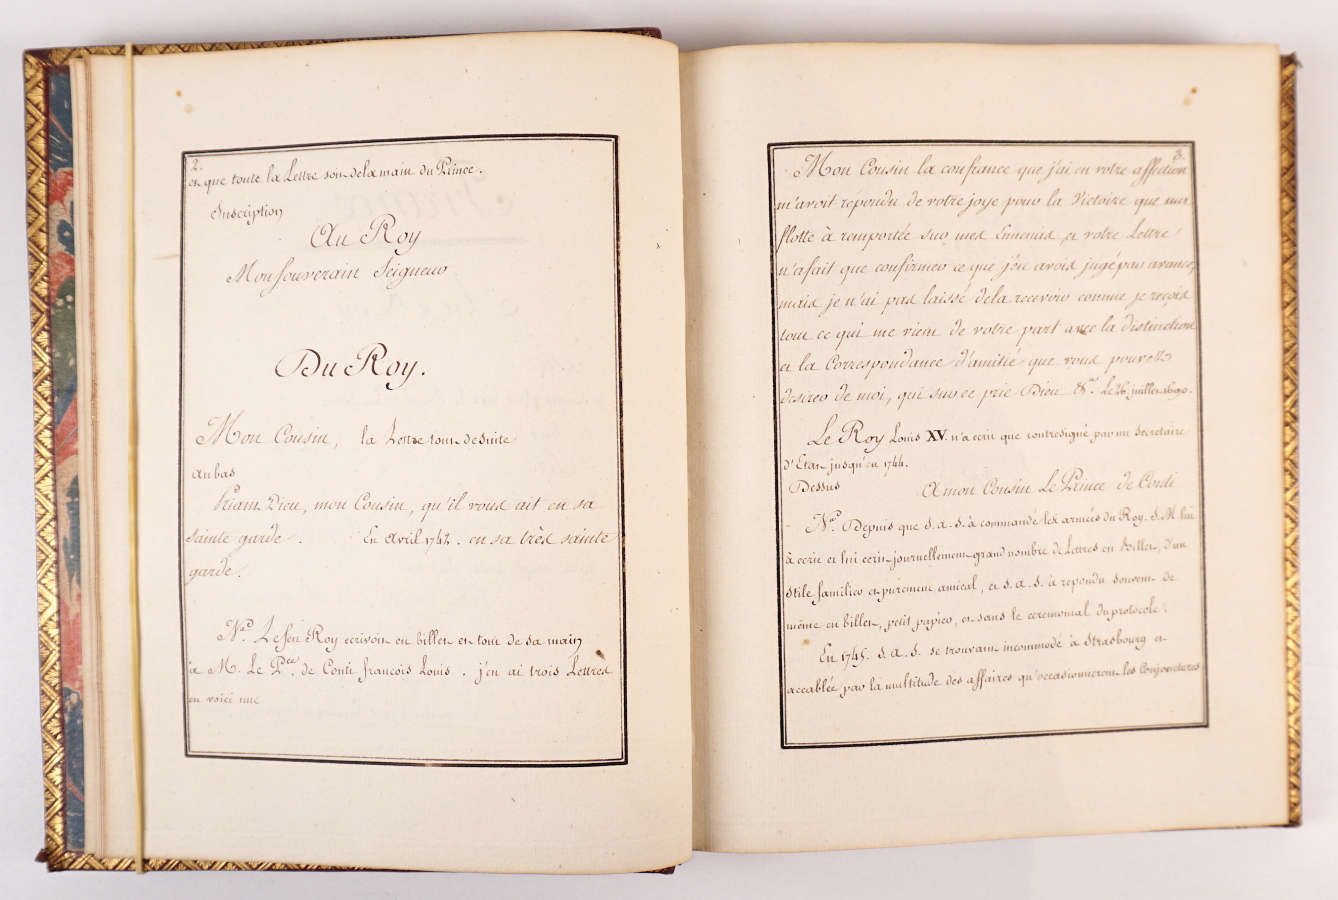 2.
et que toute la Lettre soit dela main du Prince.
Inscription
Au Roy
Mon souverain Seigneur
Du Roy.
Mon Cousin, la Lettre tout de suite
au bas
Priant Dieu, mon Cousin, qu'il vous ait en sa
sainte garde. En Avril 1742. en sa très sainte
garde.
Na. Le feu Roy ecrivoit en billet et tout de sa main
à M. Le Pce. de Conti francois Louis. j'en ai trois Lettres
en voici une
3.
Mon Cousin la confiance que j'ai en votre affection
m'avoit repondu de votre joye pour la Victoire que ma
flotte à remportée sur mes Ennemis, et votre Lettre
n'a fait que confirmer ce que j'en avois jugé par avance,
mais je n'ai pas laissé dela recevoir comme je reçois
tout ce qui me vient de votre part avec la distinction
et la Correspondance d'amitié que vous pouvez
desirer de moi, qui sur ce prie Dieu &a. Le 26. juillet 1690.
Le Roy Louis XV. n'a ecrit que contresigné par un Secretaire
d'Etat jusqu'en 1744.
Dessus A mon Cousin Le Prince de Conti
Na. Depuis que S. A. S. à commandé les armées du Roy. S. M. lui
à ecrit et lui ecrit journellement grand nombre de Lettres en billet, d'un
stile familier et purement amical, et S. A. S. à repondu souvent de
même en billet, petit papier, et sans le ceremonial du protocole.
En 1745. S. A. S. se trouvant incommodé à Strasbourg et
accablée par la multitude des affaires qu'occasionnerent les Conjonctures